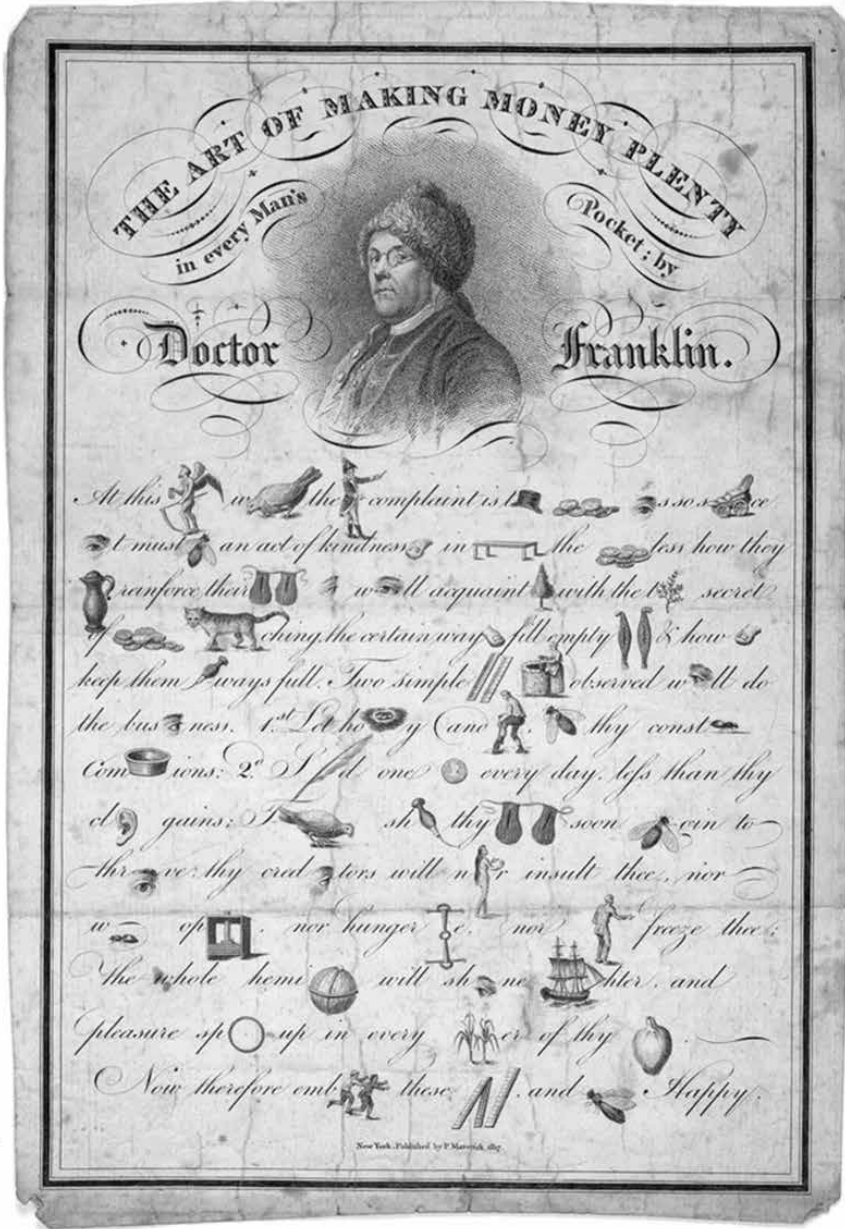 THE ART OF MAKING MONEY PLENTY
in every Man's Pocket; by
Doctor Franklin.
At this w the complaint is t s so s ce
t must an act of kindness in the less how they
reinforce their w ll acquaint with the t secret
of ching, the certain way fill empty & how
keep them ways full. Two simple observed w ll do
the bus ness. 1.st Let ho y (and . thy const
Com ions: 2.d S d one every day, less than thy
cl gains: T sh thy soon gin to
thr ve: thy cred tors will n r insult thee, nor
w op . nor hunger e. nor freeze thee:
The whole hemi will sh ne hter. and
pleasure sp up in every er of thy .
Now therefore emb these . and Happy.
New York, Published by P. Maverick, 1817.